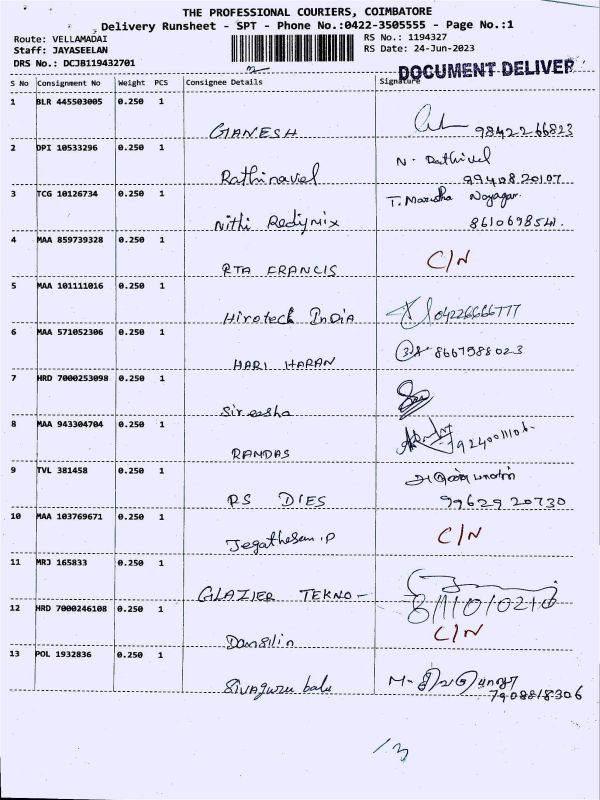 THE PROFESSIONAL COURIERS, COIMBATORE
Delivery Runsheet - SPT - Phone No.:0422-3505555 - Page No.:1
Route: VELLAMADAI
RS No.: 1194327
Staff: JAYASEELAN
RS Date: 24-Jun-2023
DRS No.: DCJB119432701
DOCUMENT DELIVER
S No Consignment No Weight PCS Consignee Details Signature
1 BLR 445503005 0.250 1
GANESH 9842266823
2 DPI 10533296 0.250 1
N. Rathivel
Rathinavel 9940820107
3 TCG 10126734 0.250 1
T.
Nithi Redymix 861069854
4 MAA 859739328 0.250 1
C/N
RTA FRANCIS
5 MAA 101111016 0.250 1
Hirotech India 04226666777
6 MAA 571052306 0.250 1
8667988023
HARI HARAN
7 HRD 7000253098 0.250 1
Sireesha
8 MAA 943304704 0.250 1
RAMDAS
9 TVL 381458 0.250 1
RS DIES 9962920730
10 MAA 103769671 0.250 1
C/N
Jegathesan.P
11 MRJ 165833 0.250 1
GLAZIER TEKNO-
12 HRD 7000246108 0.250 1
C/N
Dansilin
13 POL 1932836 0.250 1
M-
Sivaguru balu 7908818306
13